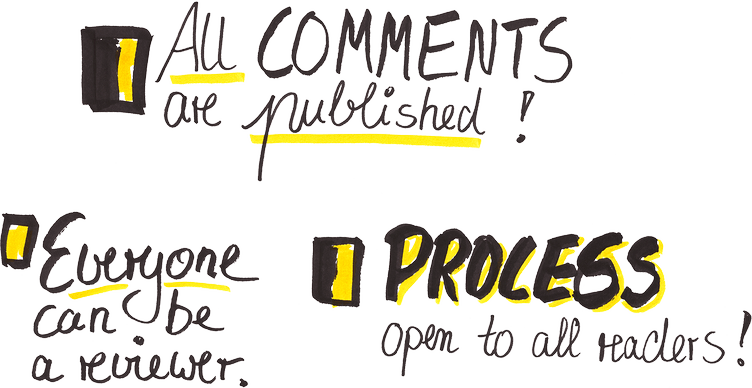 All COMMENTS
are published!
Everyone
can be
a reviewer.
PROCESS
open to all readers!